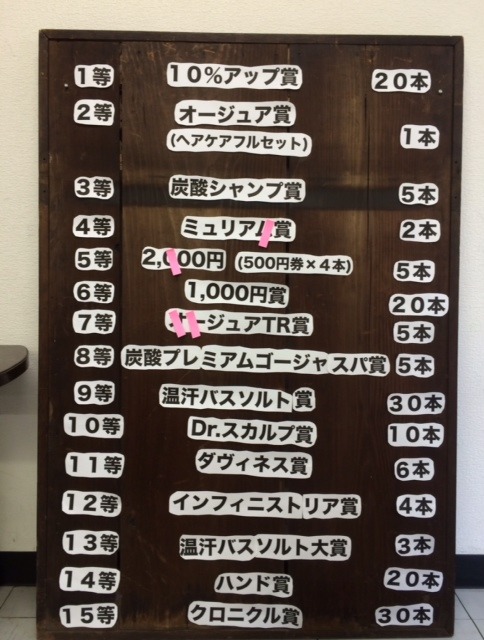 1等 10%アップ賞 20本
2等 オージュア賞
(ヘアケアフルセット) 1本
3等 炭酸シャンプ賞 5本
4等 ミュリアム賞 2本
5等 2,000円 (500円券×4本) 5本
6等 1,000円賞 20本
7等 オージュアTR賞 5本
8等 炭酸プレミアムゴージャスパ賞 5本
9等 温汗バスソルト賞 30本
10等 Dr.スカルプ賞 10本
11等 ダヴィネス賞 6本
12等 インフィニストリア賞 4本
13等 温汗バスソルト大賞 3本
14等 ハンド賞 20本
15等 クロニクル賞 30本